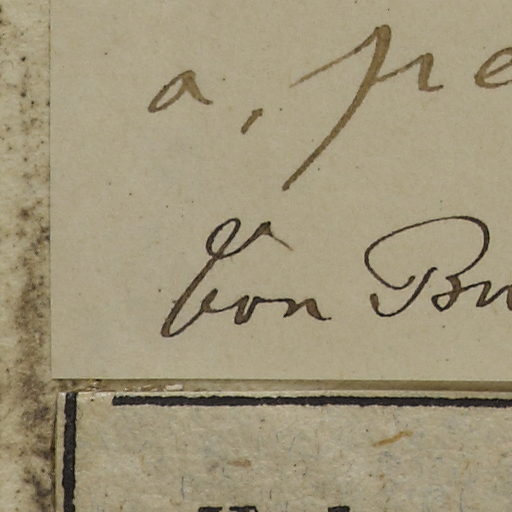 a, pe
Von Bu